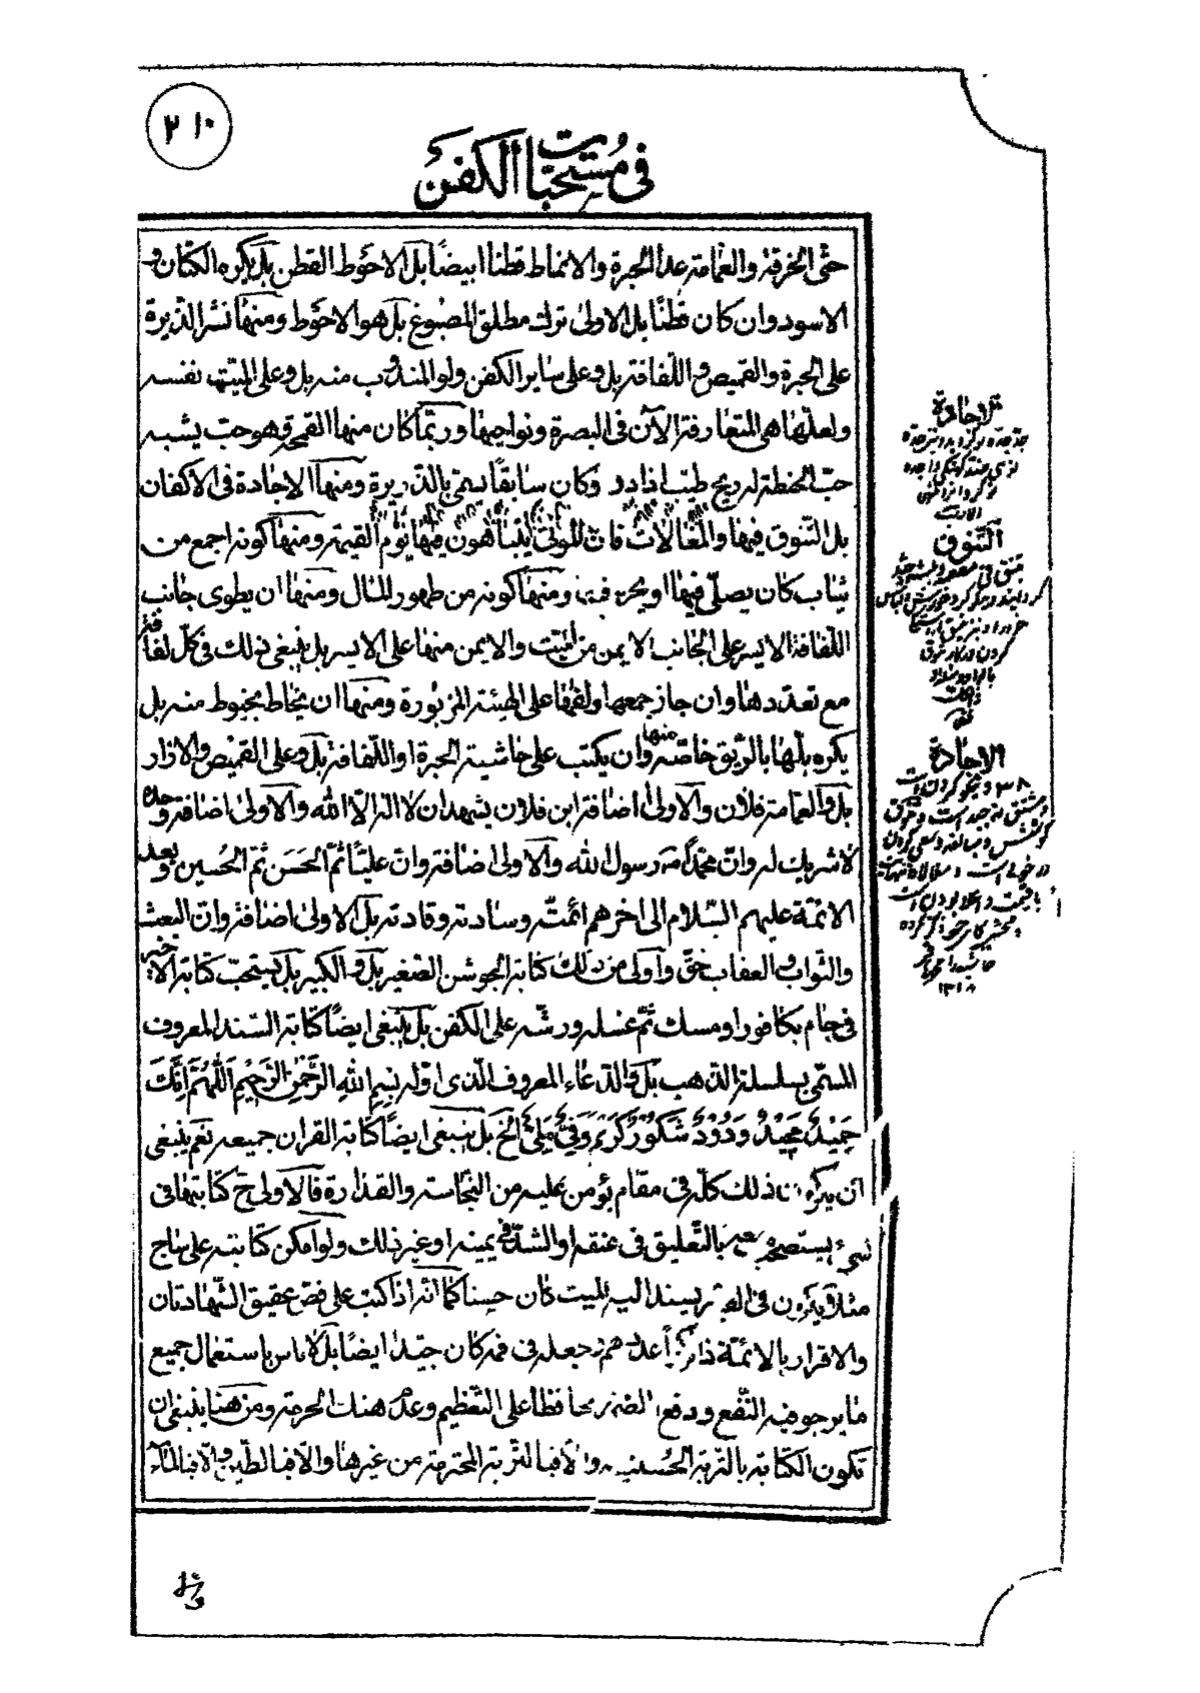 ٢١٠
في مستحبات الكفن
حتى الخرقة والعمامة عدا الحبرة والانماط قطنا ابيضا بل الاحوط القطن بل يكره الكتان و
الاسود وان كان قطنًا بل الاولى ترك مطلق المصبوغ بل هو الاحوط ومنها نشر الذريرة
على الحبرة والقميص واللفافة بل وعلى ساير الكفن ولو المندوب منه بل وعلى الميت نفسه
ولعلها هى المتعارفة الآن فى البصرة ونواحيها وربما كان منها القمحة وهو حب يشبه
حب الحنطة له ريح طيب اذا دق وكان سابقًا يسمى بالذريرة ومنها الاجادة فى الاكفان
بل التنوق فيها والمغالات فان الموتى يتباهون فيها يوم القيمة ومنها كونه اجمع من
ثياب كان يصلى فيها او يحرم فيها ومنها كونه من طهور المال ومنها ان يطوى جانب
اللفافة الايسر على الجانب الايمن من الميت والايمن منها على الايسر بل ينبغى ذلك فى كل لفافة
مع تعددها وان جاز جمعها ولفها على الهيئة المزبورة ومنها ان يخاط بخيوط منه بل
يكره بلها بالريق خاصة ومنها ان يكتب على حاشية الحبرة او اللفافة بل وعلى القميص والازار
بل والعمامة فلان والاولى اضافة ابن فلان يشهد ان لا اله الا الله والاولى اضافة وحده
لا شريك له وان محمدًا رسول الله والاولى اضافة وان عليًا ثم الحسن ثم الحسين و بعد
الائمة عليهم السلام الى اخرهم ائمته وسادته وقادته بل الاولى اضافة وان البعث
والثواب والعقاب حق واولى من ذلك كتابة الجوشن الصغير بل والكبير بل يستحب كتابة الاخير
فى جام بكافور او مسك ثم غسله ورشه على الكفن بل ينبغى ايضًا كتابة السند المعروف
المسمى بسلسلة الذهب بل والدعاء المعروف الذى اوله بسم الله الرحمن الرحيم اللهم انك
حميد مجيد ودود شكور كريم وفي ملي الخ بل ينبغى ايضًا كتابة القران جميعه نعم ينبغى
ان يكون ذلك كله فى مقام يؤمن عليه من النجاسة والقذارة فالاولى ح كتابتها فى
شىء يستصحبه معه بالتعليق فى عنقه او الشد فى يمينه او غير ذلك ولو امكن كتابته على تاج
مثلا ويكون فى القبر يسند اليه الميت كان حسنا كما انه اذا كتب على فص عقيق الشهادتان
والاقرار بالائمة ذاكرًا عددهم وجعله فى فمه كان جيدًا ايضًا بل لا باس باستعمال جميع
ما يرجو فيه النفع ودفع الضرر محافظا على التعظيم وعدم هتك الحرمة ومن هنا ينبغى ان
تكون الكتابة بالتربة الحسينية والا فبالتربة المحترمة من غيرها والا فبالطين والا فبالماء
الاجادة
التنوق
الاجادة
١٣١٨